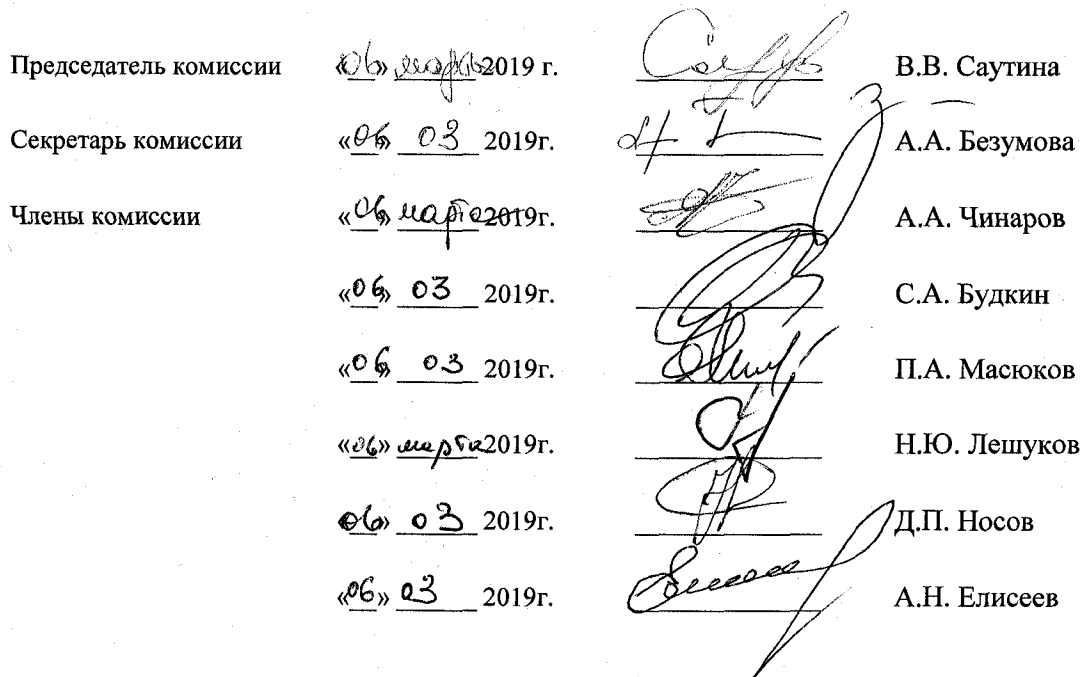 Председатель комиссии «06» марта 2019 г. В.В. Саутина
Секретарь комиссии «06» 03 2019г. А.А. Безумова
Члены комиссии «06» марта 2019г. А.А. Чинаров
«06» 03 2019г. С.А. Будкин
«06» 03 2019г. П.А. Масюков
«06» марта 2019г. Н.Ю. Лешуков
«06» 03 2019г. Д.П. Носов
«06» 03 2019г. А.Н. Елисеев